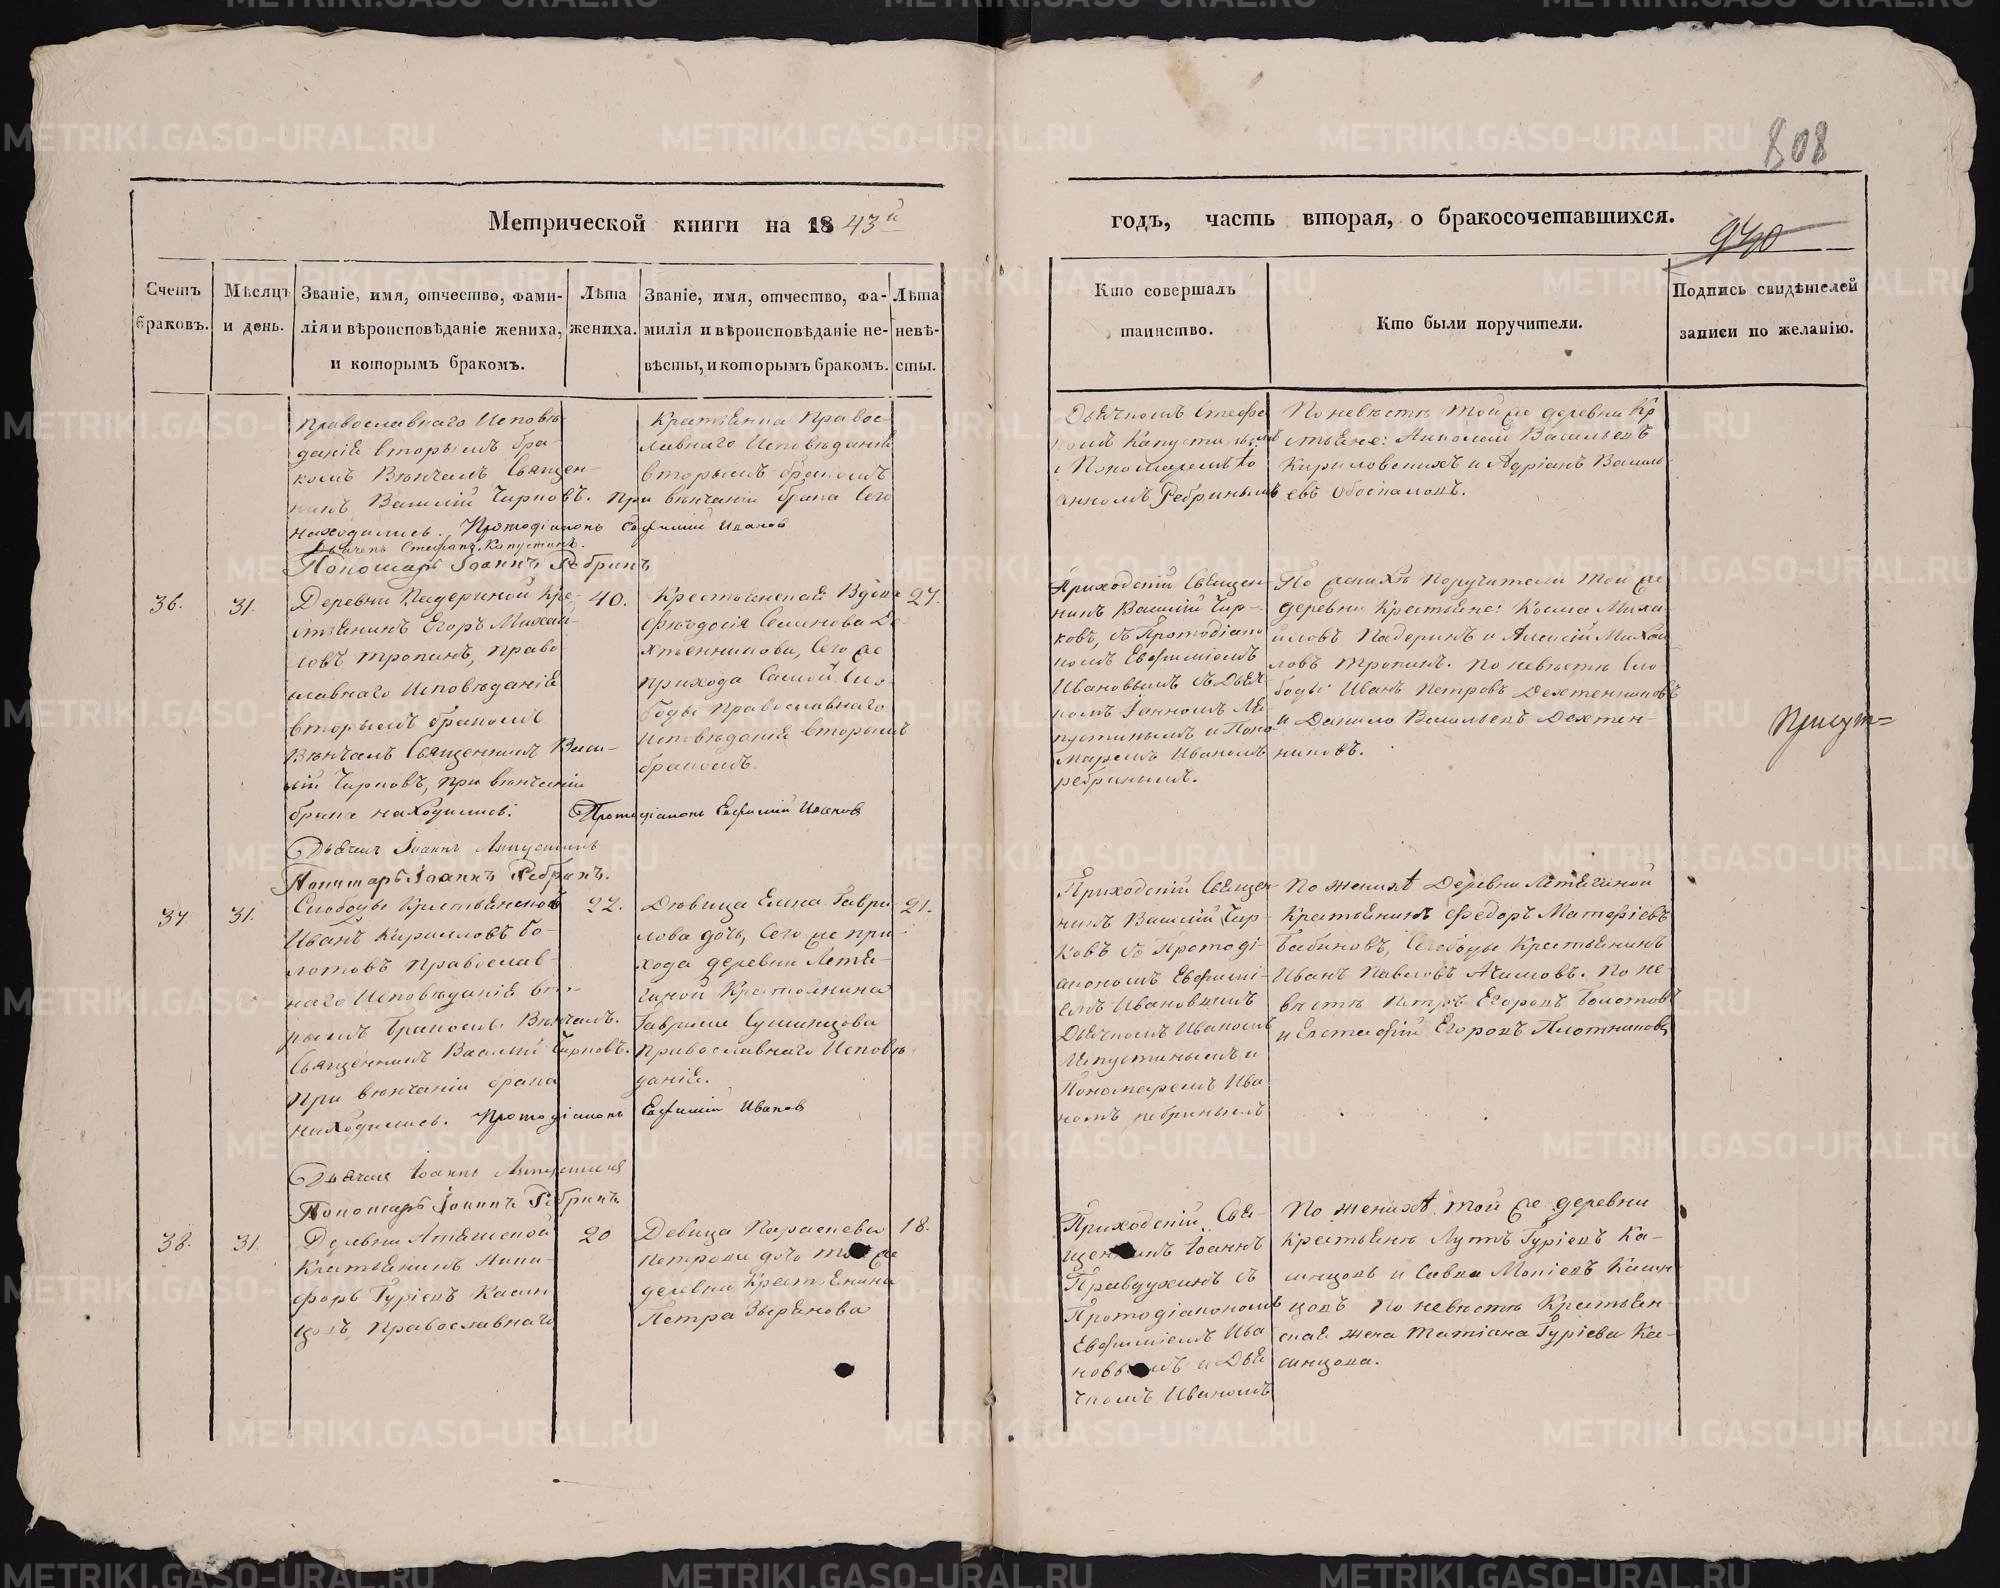 808
Метрической книги на 1843й
годъ, часть вторая, о бракосочетавшихся.
940
Счетъ браковъ.
Мѣсяцъ и день.
Званіе, имя, отчество, фами-
лія и вѣроисповѣданіе жениха,
и которымъ бракомъ.
Лѣта жениха.
Званіе, имя, отчество, фа-
милія и вѣроисповѣданіе не-
вѣсты, и которымъ бракомъ.
Лѣта невѣ-
сты.
Кто совершалъ
таинство.
Кто были поручители.
Подпись свидѣтелей
записи по желанію.
православнаго Исповѣ
даніе вторымъ бра-
комъ Вѣнчалъ Священ-
никъ Василій Чирковъ. При вѣнчаніи брака сего
находились. Протодіаконъ Евфимій Ивановъ
Дьячекъ Стефанъ Капустинъ.
Пономарь Іоаннъ Ребринъ
Православнаго Исповѣданіе
вторымъ бракомъ
Дьячкомъ Стефа
номъ Капустинымъ
и Пономаремъ Іо
анномъ Ребринымъ
По невѣстѣ той же деревни Кр
стьяне: Николай Васильевъ
Кириловскихъ и Адріанъ Василь
евъ
36.
31.
Деревни Падериной Кре-
стьянинъ Егоръ Михаи-
ловъ Тропинъ, право
славнаго Исповѣданіе
вторымъ бракомъ
Вѣнчалъ Священникъ Васи-
лій Чирковъ, при вѣнчаніи
брака находились:
Протодіаконъ Евфимій Ивановъ
Дьячекъ Іоаннъ
Пономарь Іоаннъ Ребринъ.
40.
Крестьянская Вдова
Феодосія Семенова Де-
хтенникова, Сего же
прихода Самой Сло-
боды Православнаго
Исповѣданіе вторымъ
бракомъ.
27.
Приходскій Священ-
никъ Василій Чир-
ковъ, съ Протодіако
номъ Евфиміемъ
Ивановымъ съ Дьяч-
комъ
и Поно-
маремъ Иваномъ
ребринымъ.
По женихѣ поручители той же
деревни Крестьяне: Косма Миха-
йловъ Падеринъ и Алексій Михаи
ловъ Тропинъ. по невѣстѣ Сло-
боды Иванъ Петровъ Дехтенниковъ
и Данило Васильевъ Дехтен-
никовъ.
37
31.
Слободы Крестьянской
Иванъ Кириловъ Бо-
лотовъ Православ-
наго Исповѣданіе вто-
рымъ бракомъ. Вѣнчалъ.
Священникъ Василій Чирковъ.
При вѣнчаніи брака
находились. Протодіаконъ Евфимій Ивановъ
Дьячекъ Іоаннъ
Пономарь Іоаннъ Ребринъ
22.
Дѣвица Елена Гаври-
лова дочь, Сего же при-
хода деревни Летя-
гиной Крестьянина
Гаврила
Православнаго Исповѣ
даніе.
21.
Приходскій Священ
никъ Василій Чир-
ковъ съ Протоді-
акономъ Евфимі-
емъ Ивановымъ
Дьячкомъ Иваномъ
и
Пономаремъ Ива
номъ ребринымъ
По женихѣ Деревни Летягиной
Крестьянинъ Федоръ Матфіевъ
Бабиновъ, Слободы Крестьянинъ
Иванъ Павловъ Акимовъ. По не-
вѣстѣ Петръ Егоровъ Болотовъ
и Евстафій Егоровъ Плотниковъ
38.
31.
Деревни
Крестьянинъ Ники-
форъ Гуріевъ Казан
цовъ, Православнаго
20
Девица Параскева
Петрова дочь той же
деревни Крестьянина
Петра Зырянова
18.
Приходскій Свя-
щенникъ Іоаннъ
Правдухинъ съ
Протодіакономъ
Евфиміемъ Ива
новымъ и Дья
чкомъ Иваномъ
По женихѣ той же деревни
Крестьяне Лутъ Гуріевъ Ка-
занцовъ и Савва Казан-
цовъ по невѣстѣ Крестьян-
ская жена Татіана Гуріева Ка-
занцова.